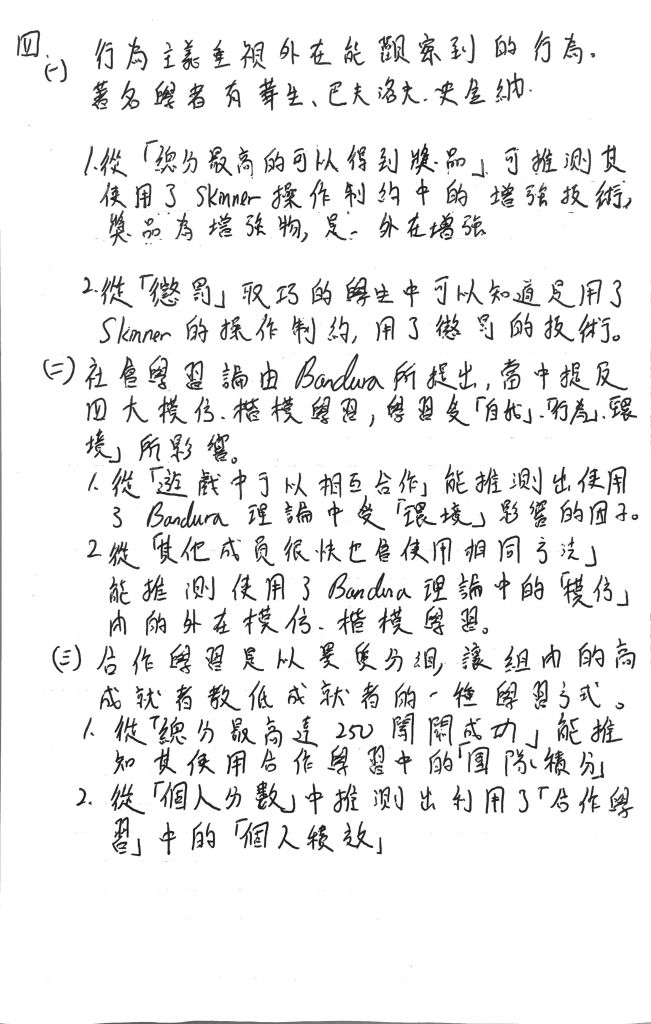 四.
(一) 行為主義重視外在能觀察到的行為。
著名學者有華生、巴夫洛夫、史金納.
1.從「總分最高的可以得到獎品」可推測其
使用了Skinner操作制約中的增強技術,
獎品為增強物,是一外在增強
2.從「懲罰」取巧的學生中可以知道是用了
Skinner的操作制約,用了懲罰的技術。
(二) 社會學習論由Bandura所提出,當中提及
四大模仿、楷模學習,學習受「自我」、「行為」、「環
境」所影響。
1.從「遊戲中可以相互合作」能推測出使用
了Bandura理論中受「環境」影響的因子。
2 從「其他成員很快也會使用相同方法」
能推測使用了Bandura理論中的「模仿」
內的外在模仿、楷模學習。
(三) 合作學習是以異質分組,讓組內的高
成就者教低成就者的一種學習方式。
1.從「總分最高達250闖關成功」能推
知其使用合作學習中的「團隊積分」
2.從「個人分數」中推測出利用了「合作學
習」中的「個人績效」